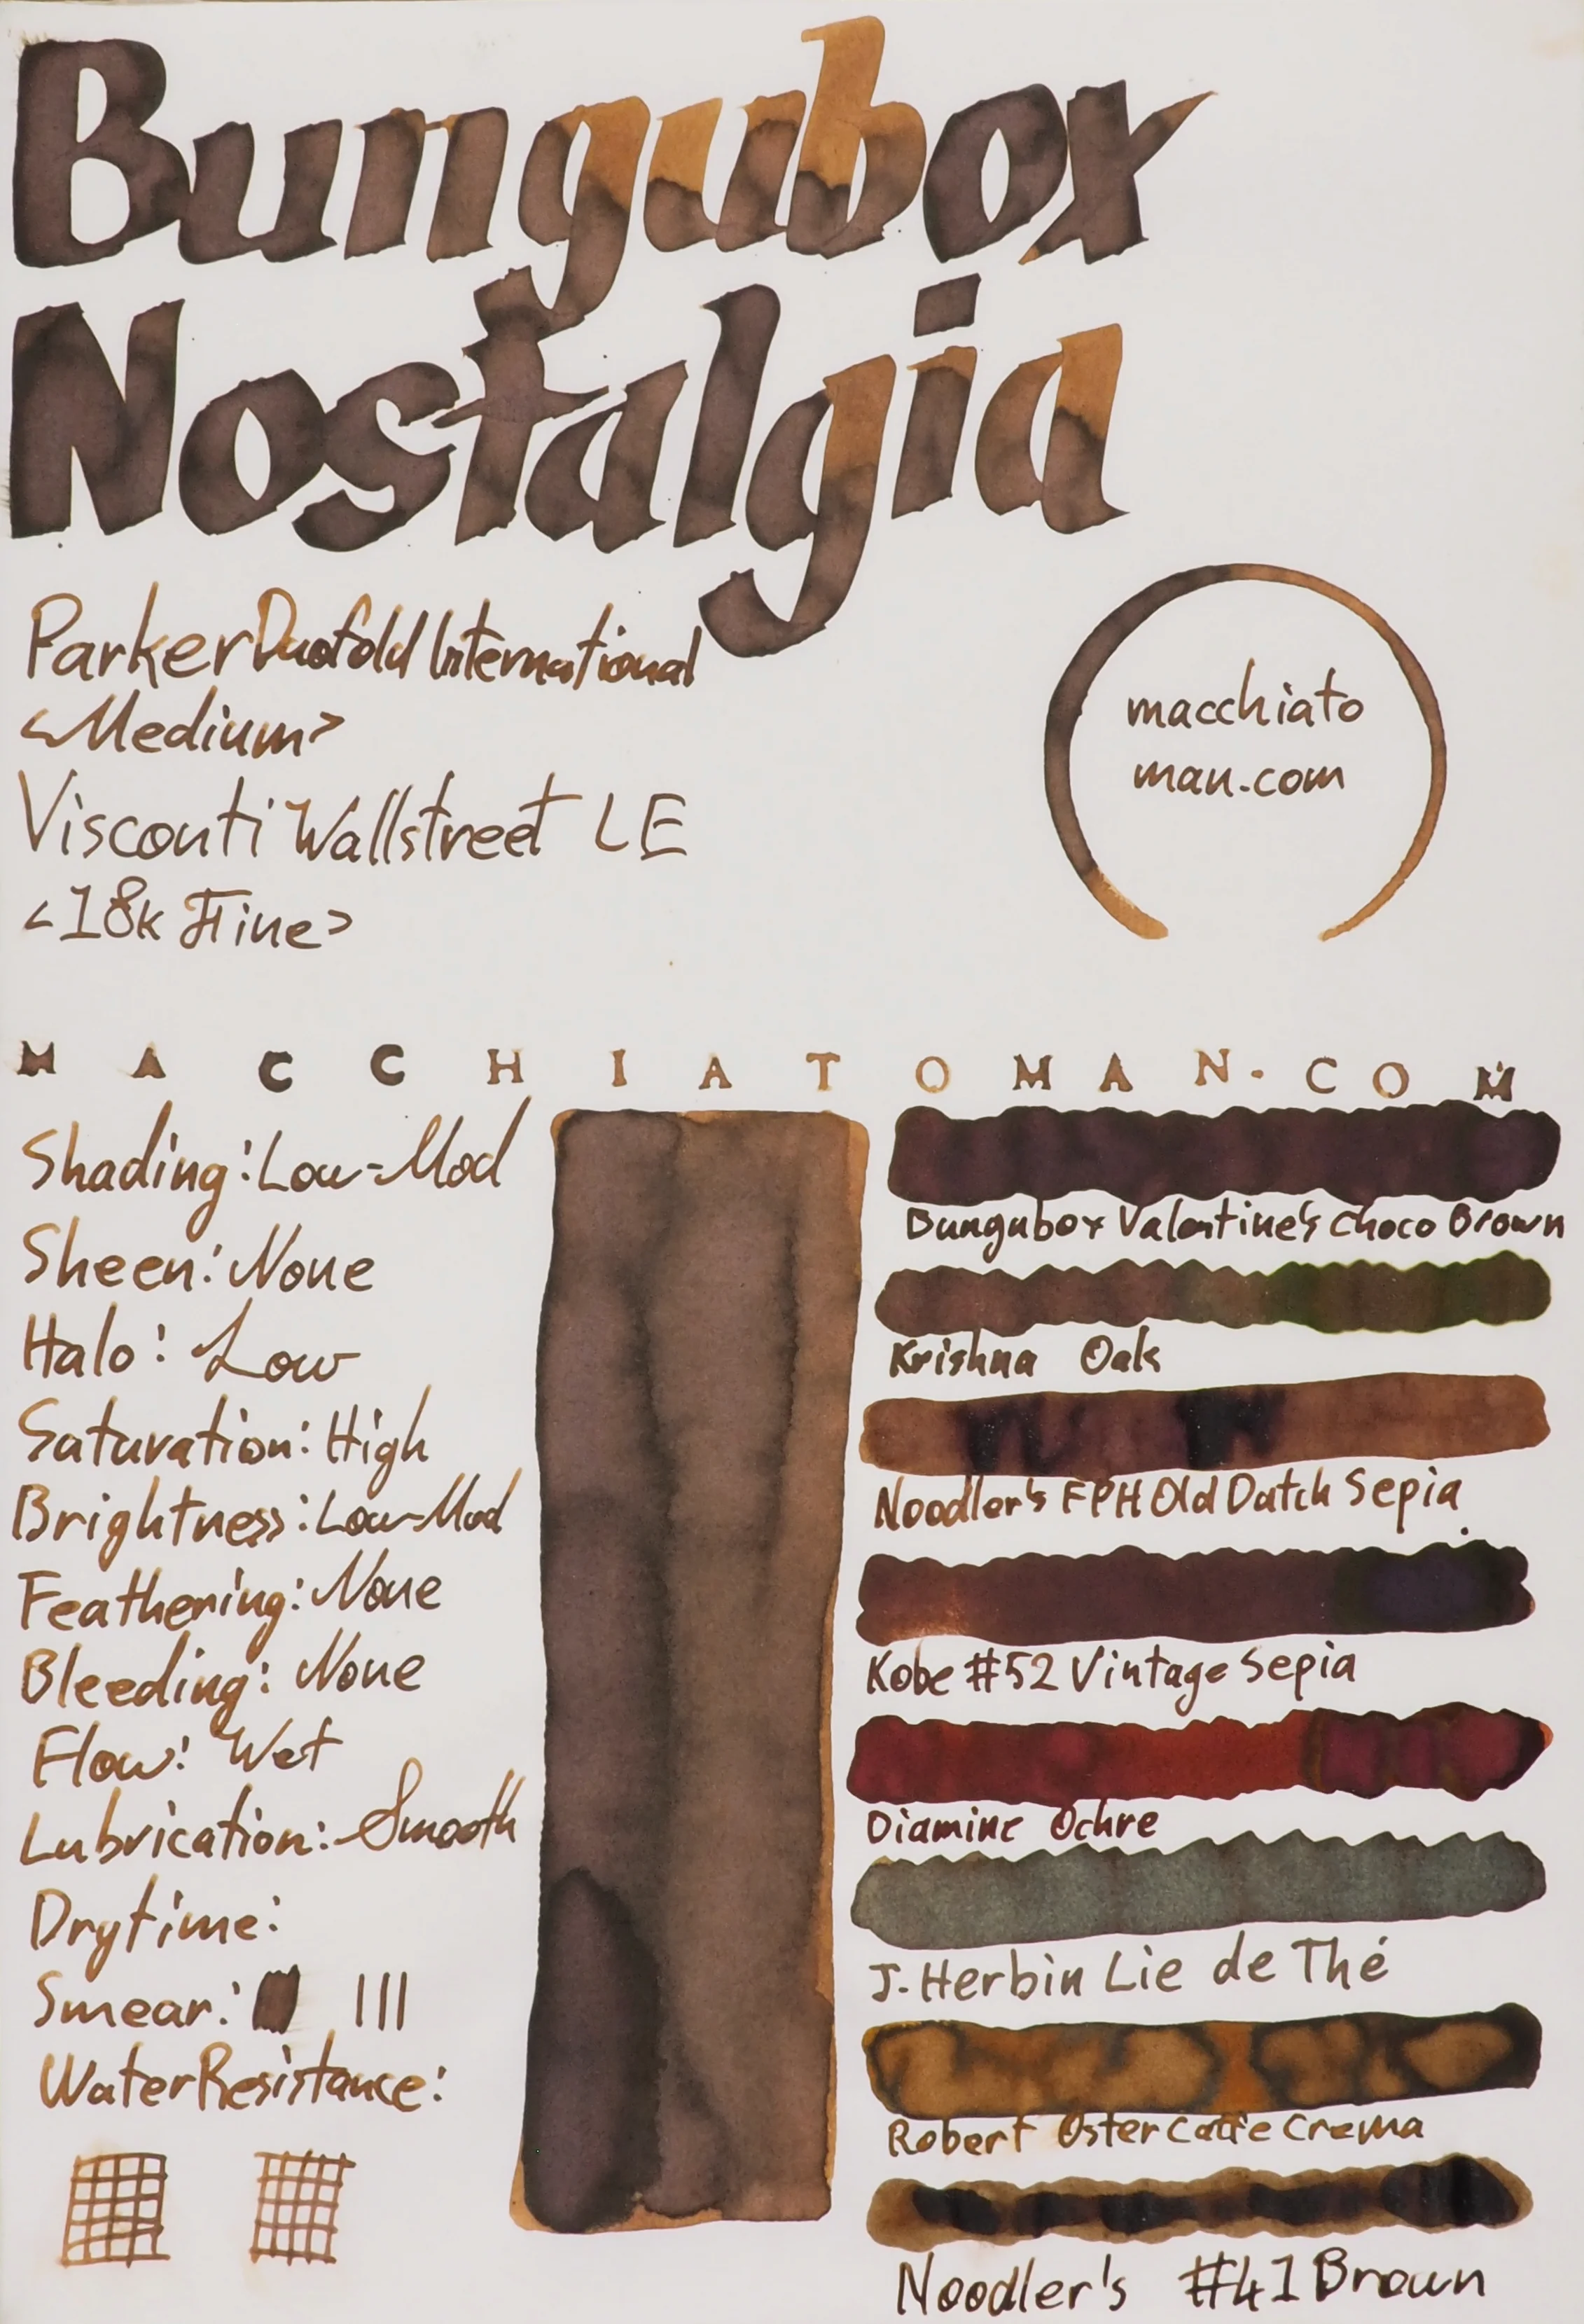 Bungubox
Nostalgia
Parker Duofold International
<Medium>
Visconti Wallstreet LE
<18k Fine>
macchiato
man.com
MACCHIATOMAN.COM
Shading: Low-Mod
Sheen: None
Halo: Low
Saturation: High
Brightness: Low-Mod
Feathering: None
Bleeding: None
Flow: Wet
Lubrication: Smooth
Drytime:
Smear:
Water Resistance:
Bungubox Valentine's Choco Brown
Krishna Oak
Noodler's FPH Old Dutch Sepia
Kobe #52 Vintage Sepia
Diamine Ochre
J. Herbin Lie de Thé
Robert Oster Caffe Crema
Noodler's #41 Brown